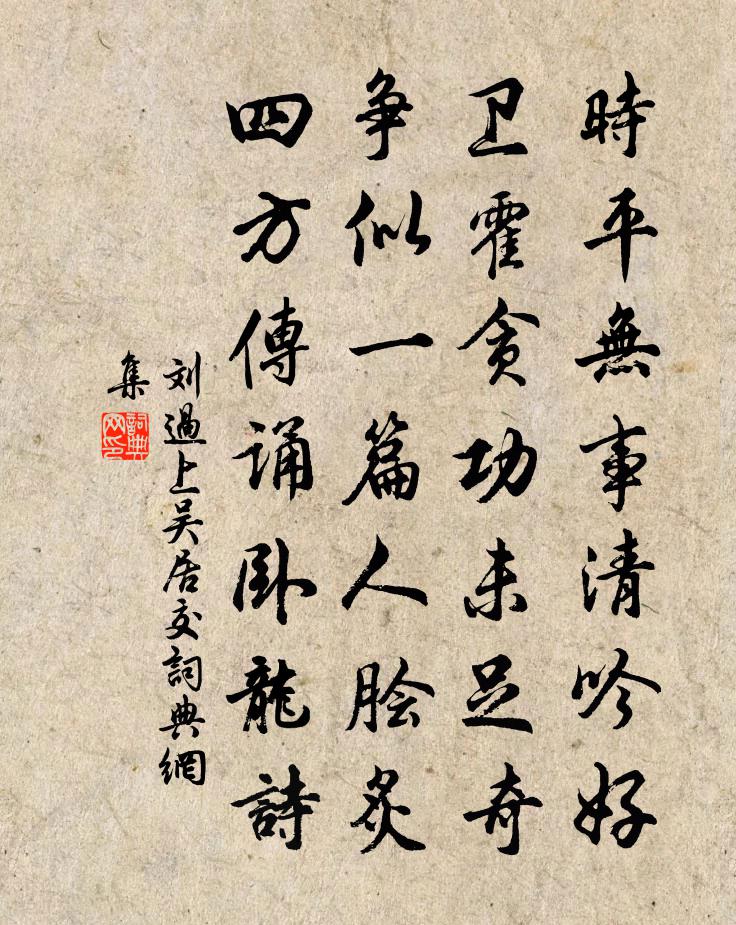 時平無事清吟好
卫霍贪功未足奇
争似一篇人脍炙
四方傳诵卧龍詩
刘過上吴居父詞典網
集
詞典
网印